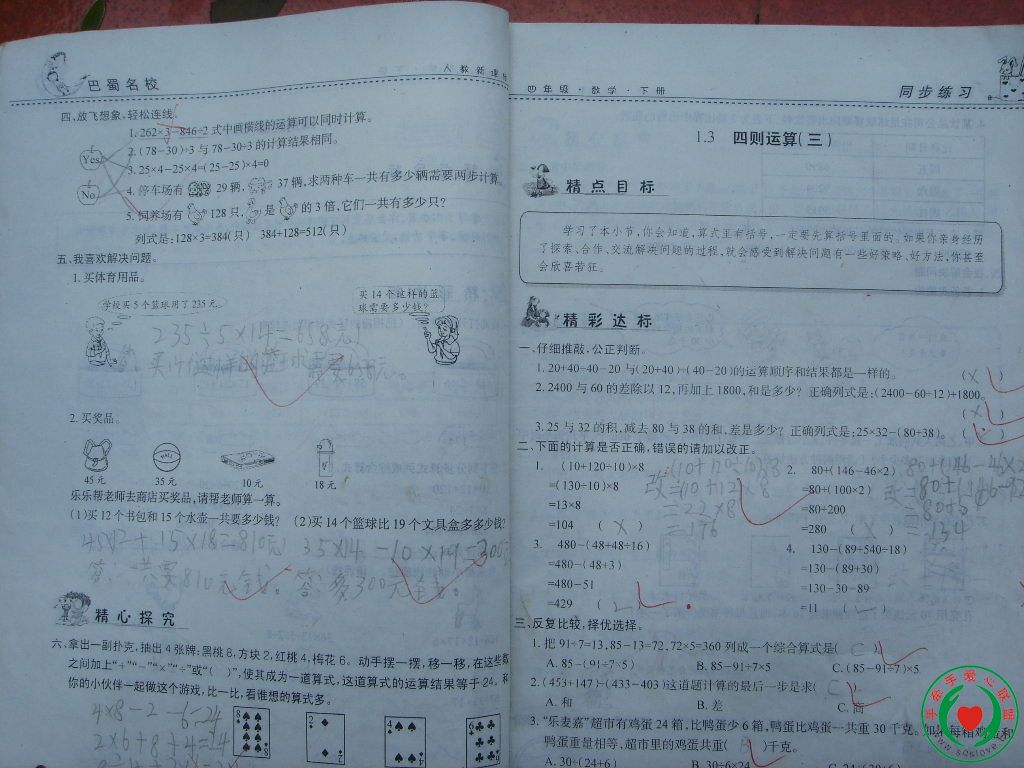 巴蜀名校
人教新课标
四、放飞想象，轻松连线。
1. 262×3-846÷2 式中画横线的运算可以同时计算。
Yes
2. (78-30)÷3 与 78-30÷3 的计算结果相同。
3. 25×4-25×4=(25-25)×4=0
No
4. 停车场有 29 辆, 37 辆,求两种车一共有多少辆需要两步计算。
5. 饲养场有 128 只, 是 的 3 倍,它们一共有多少只?
列式是:128×3=384(只) 384+128=512(只)
五、我喜欢解决问题。
1. 买体育用品。
学校买 5 个篮球用了 235 元。
买 14 个这样的篮球需要多少钱?
235÷5×14=658元
答：买14个这样的篮球需要658元。
2. 买奖品。
45 元 35 元 10 元 18 元
乐乐帮老师去商店买奖品,请帮老师算一算。
(1)买 12 个书包和 15 个水壶一共要多少钱? (2)买 14 个篮球比 19 个文具盒多多少钱?
45×12+15×18=810元 35×14-10×19=300元
答：共要810元钱。 答：多300元钱。
精心探究
六、拿出一副扑克,抽出 4 张牌:黑桃 8,方块 2,红桃 4,梅花 6。动手摆一摆,移一移,在这些数
之间加上“+”“-”“×”“÷”或“( )”,使其成为一道算式,这道算式的运算结果等于 24。和
你的小伙伴一起做这个游戏,比一比,看谁想的算式多。
4×8-2-6=24
2×6+8+4=24
四年级·数学·下册
同步练习
1.3 四则运算(三)
精点目标
学习了本小节,你会知道,算式里有括号,一定要先算括号里面的。如果你亲身经历
了探索、合作、交流解决问题的过程,就会感受到解决问题有一些好策略、好方法,你甚至
会欣喜若狂。
精彩达标
一、仔细推敲,公正判断。
1. 20+40÷40-20 与 (20+40)÷(40-20)的运算顺序和结果都是一样的。 (×)
2. 2400 与 60 的差除以 12,再加上 1800,和是多少? 正确列式是:(2400-60÷12)+1800。
(×)
3. 25 与 32 的积,减去 80 与 38 的和,差是多少? 正确列式是:25×32-(80+38)。 (✓)
二、下面的计算是否正确,错误的请加以改正。
1. (10+120÷10)×8 (10+120÷10)×8 2. 80+(146-46×2) 80+(146-46×2)
=(130÷10)×8 改=(10+12)×8 =80+(100×2) 改=80+(146-92)
=13×8 =22×8 =80+200 =80+54
=104 (×) =176 =280 (×) =134
3. 480-(48+48÷16) 4. 130-(89+540÷18)
=480-(48+3) =130-(89+30)
=480-51 =130-30-89
=429 (✓) =11 (✓)
三、反复比较,择优选择。
1. 把 91÷7=13,85-13=72,72×5=360 列成一个综合算式是( C )
A. 85-(91÷7×5) B. 85-91÷7×5 C. (85-91÷7)×5
2. (453+147)÷(433-403)这道题计算的最后一步是求( C )
A. 和 B. 差 C. 商
3. “乐麦嘉”超市有鸡蛋 24 箱,比鸭蛋少 6 箱,鸭蛋比鸡蛋一共重 30 千克。如果每箱鸡蛋和
鸭蛋重量相等,超市里的鸡蛋共重( B )千克。
A. 30÷(24+6) B. 30÷6×24 C. 24÷(30÷6)
手牵手爱心联盟